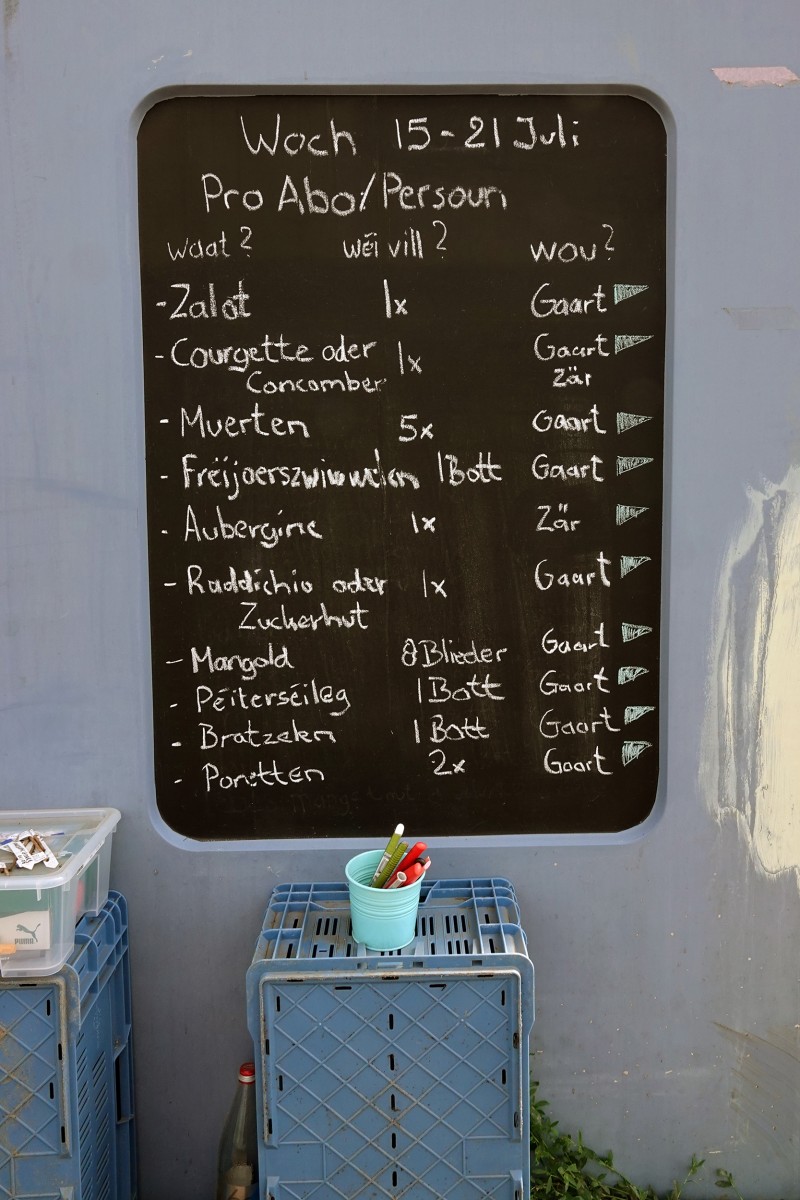 Woch 15-21 Juli
Pro Abo/Persoun
waat? wéi vill? wou?
-Zalot 1x Gaart
-Courgette oder 1x Gaart
Concomber Zär
-Muerten 5x Gaart
-Fréijoerszwiwwelen 1Bott Gaart
-Aubergine 1x Zär
-Raddichio oder 1x Gaart
Zuckerhut
-Mangold 8Blieder Gaart
-Péiterséileg 1Bott Gaart
-Bratzelen 1Bott Gaart
-Poretten 2x Gaart
PUMA